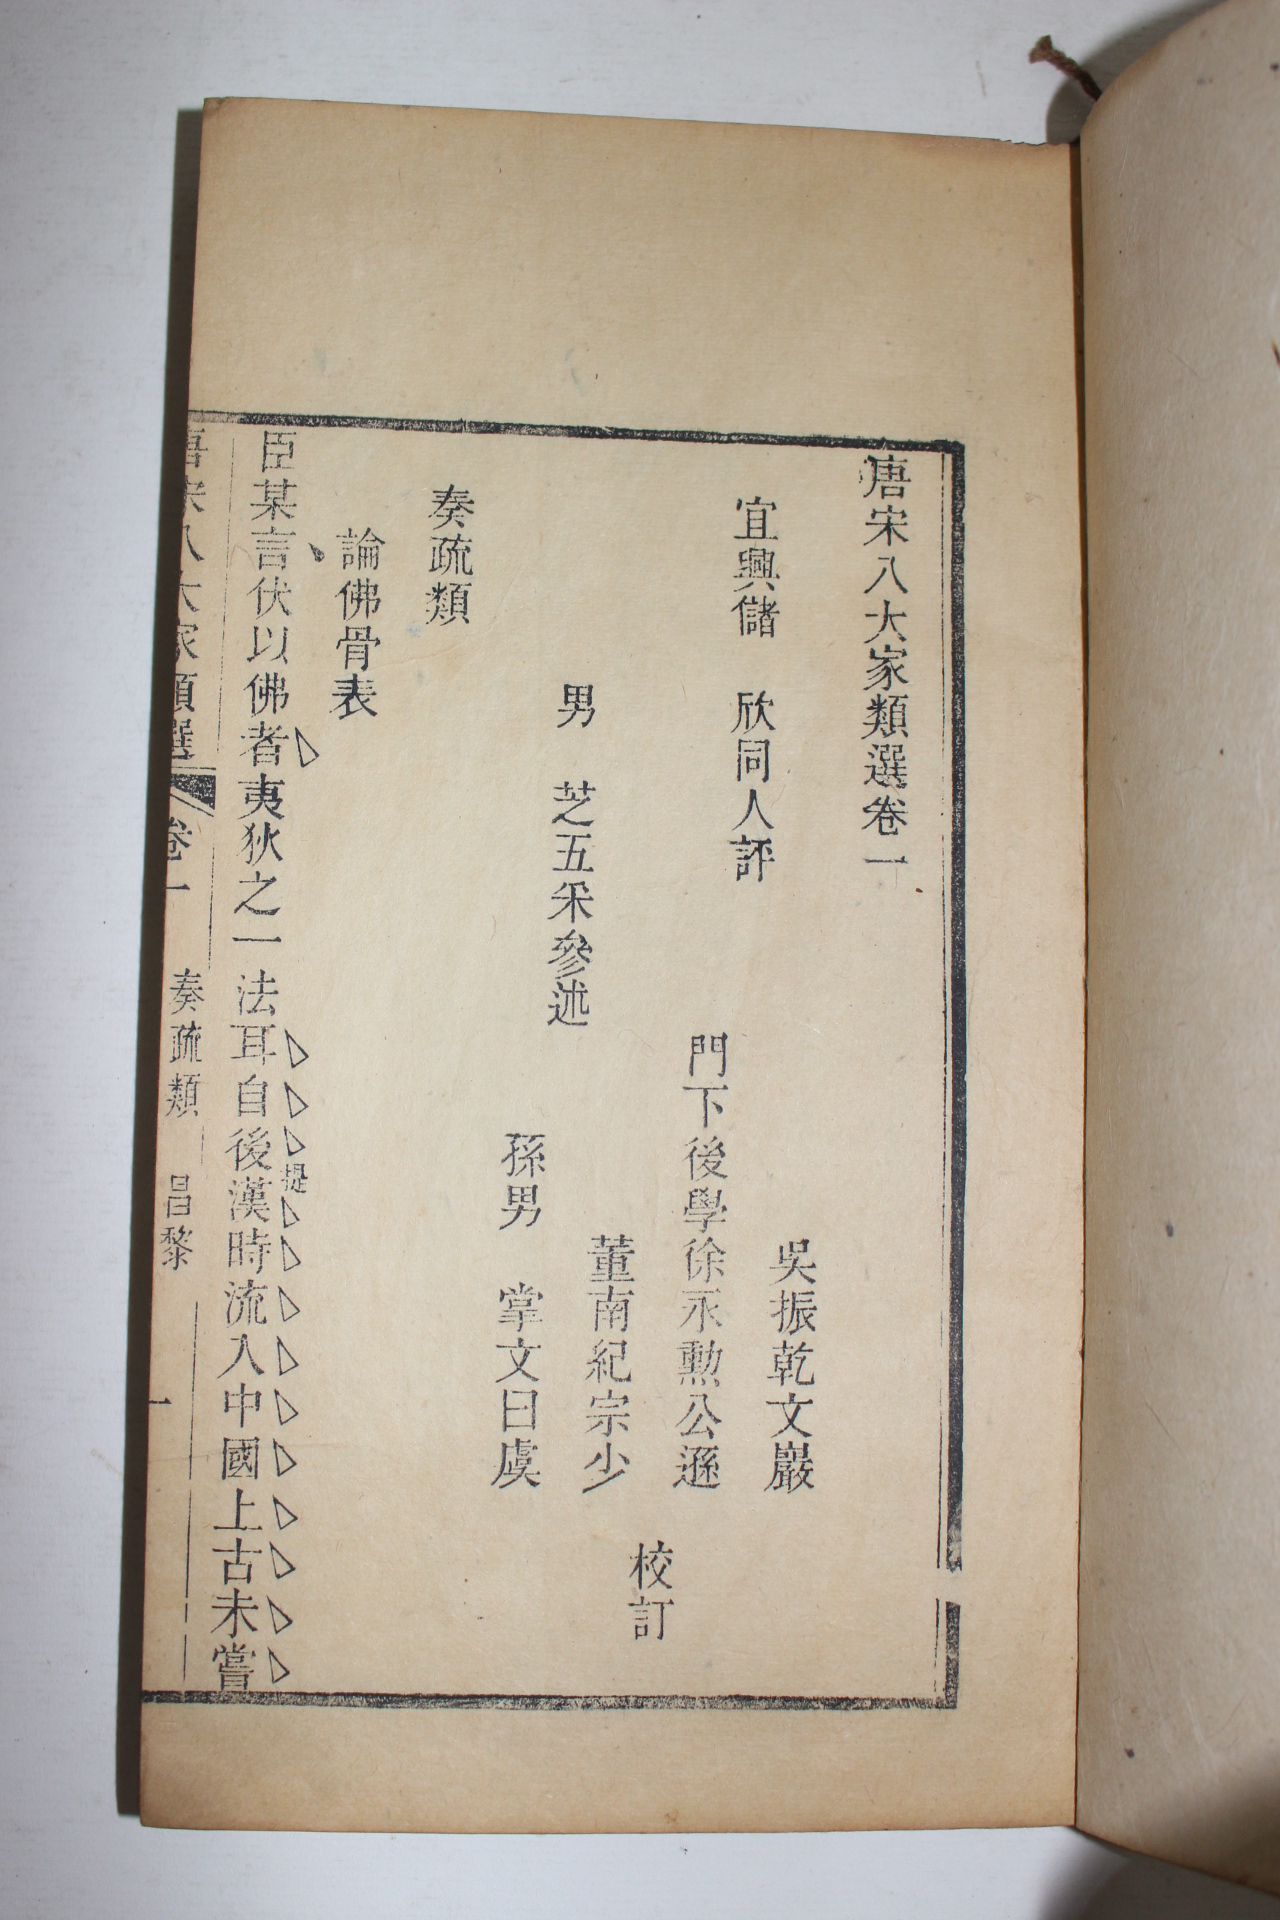 唐宋八大家類選卷一
宜興儲 欣同人評
吳振乾文巖
門下後學徐永勲公遜
董南紀宗少
校訂
男 芝五采參述
孫男 掌文曰虞
奏疏類
論佛骨表
臣某言伏以佛者夷狄之一法耳自後漢時流入中國上古未嘗
提
唐宋八大家類選 卷一 奏疏類 昌黎 一